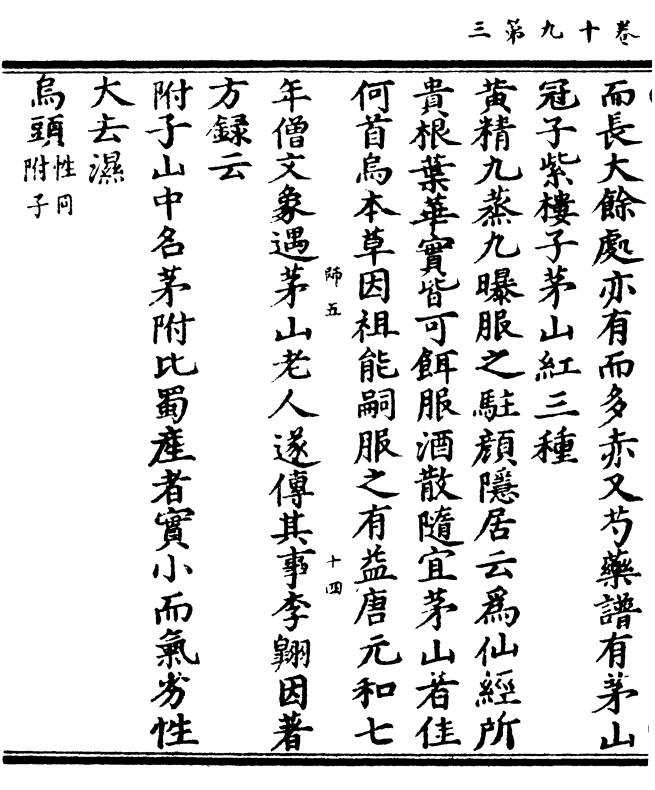 三第九十卷
而長大餘處亦有而多赤又芍藥譜有茅山
冠子紫樓子茅山紅三種
黃精九蒸九曝服之駐顏隱居云為仙經所
貴根葉華實皆可餌服酒散隨宜茅山者佳
何首烏本草因祖能嗣服之有益唐元和七
師五
十四
年僧文象遇茅山老人遂傳其事李翱因著
方録云
附子山中名茅附比蜀產者實小而氣劣性
大去濕
烏頭性同附子